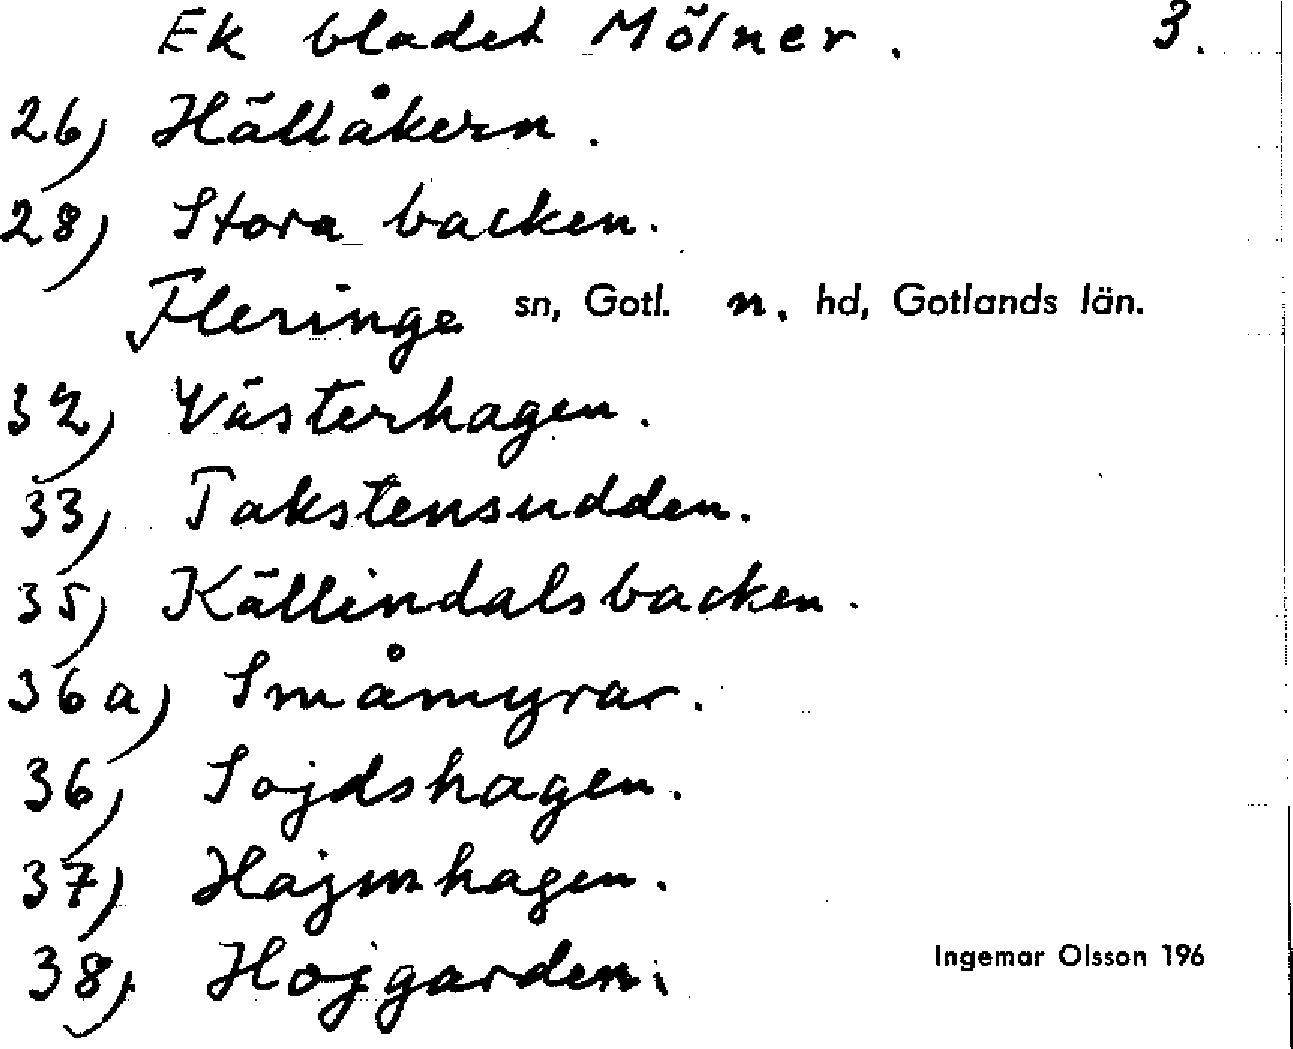 Ek bladet Mölner. 3.
26) Hällåkern.
28) Stora backen.
Fleringe sn, Gotl. n. hd, Gotlands län.
32) Västerhagen.
33) Takstensudden.
35) Källindalsbacken.
36a) Småmyrar.
36) Sojdshagen.
37) Hajmhagen.
38) Hojgarden.
Ingemar Olsson 196